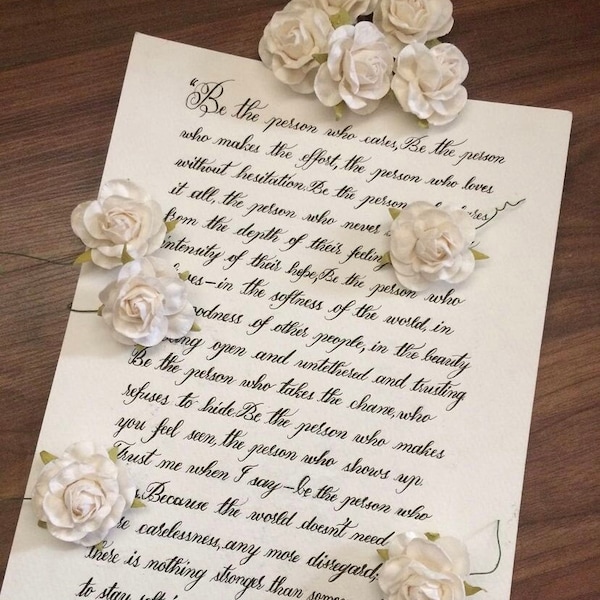 "Be the person who cares, Be the person
who makes the effort, the person who loves
without hesitation. Be the person
it all, the person who never
from the depth of their feeling
intensity of their hope, Be the person who
in the softness of the world, in
goodness of other people, in the beauty
open and untethered and trusting
Be the person who takes the chane, who
refuses to hide. Be the person who makes
you feel seen, the person who shows up.
Trust me when I say—be the person who
Because the world doesn't need
carelessness, any more disregard;
there is nothing stronger than
to stay